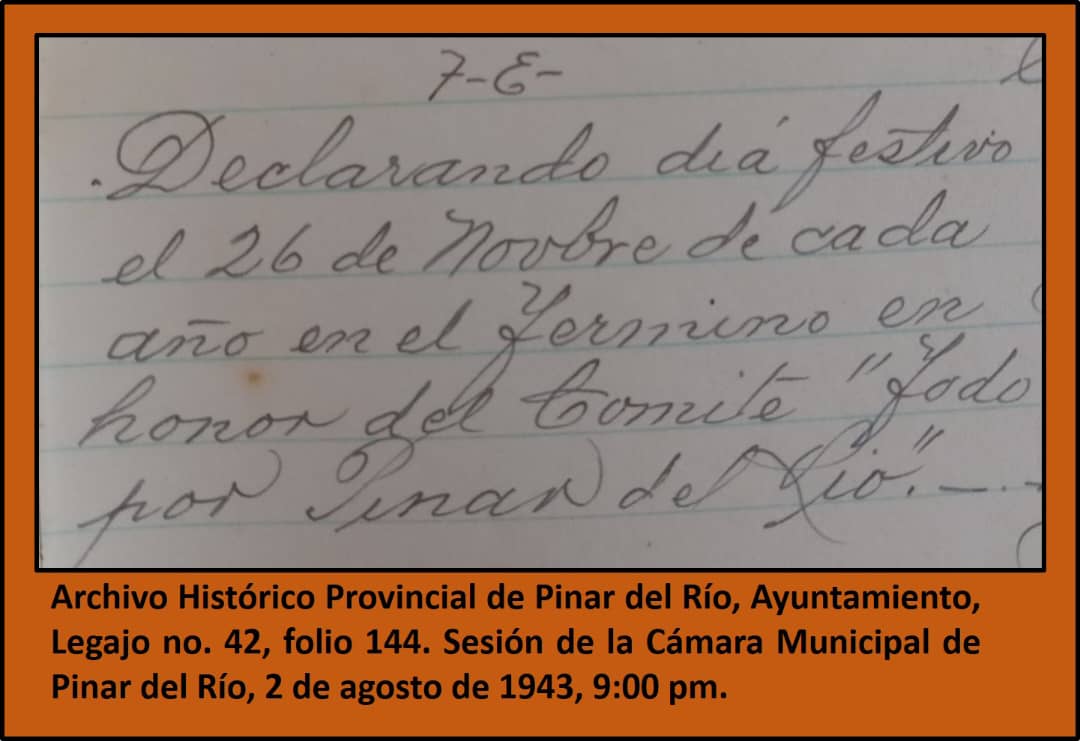 7-E-
Declarando diá festivo
el 26 de Novbre de cada
año en el Termino en
honor del Comité "Todo
por Pinar del Rio".-.-
Archivo Histórico Provincial de Pinar del Río, Ayuntamiento,
Legajo no. 42, folio 144. Sesión de la Cámara Municipal de
Pinar del Río, 2 de agosto de 1943, 9:00 pm.